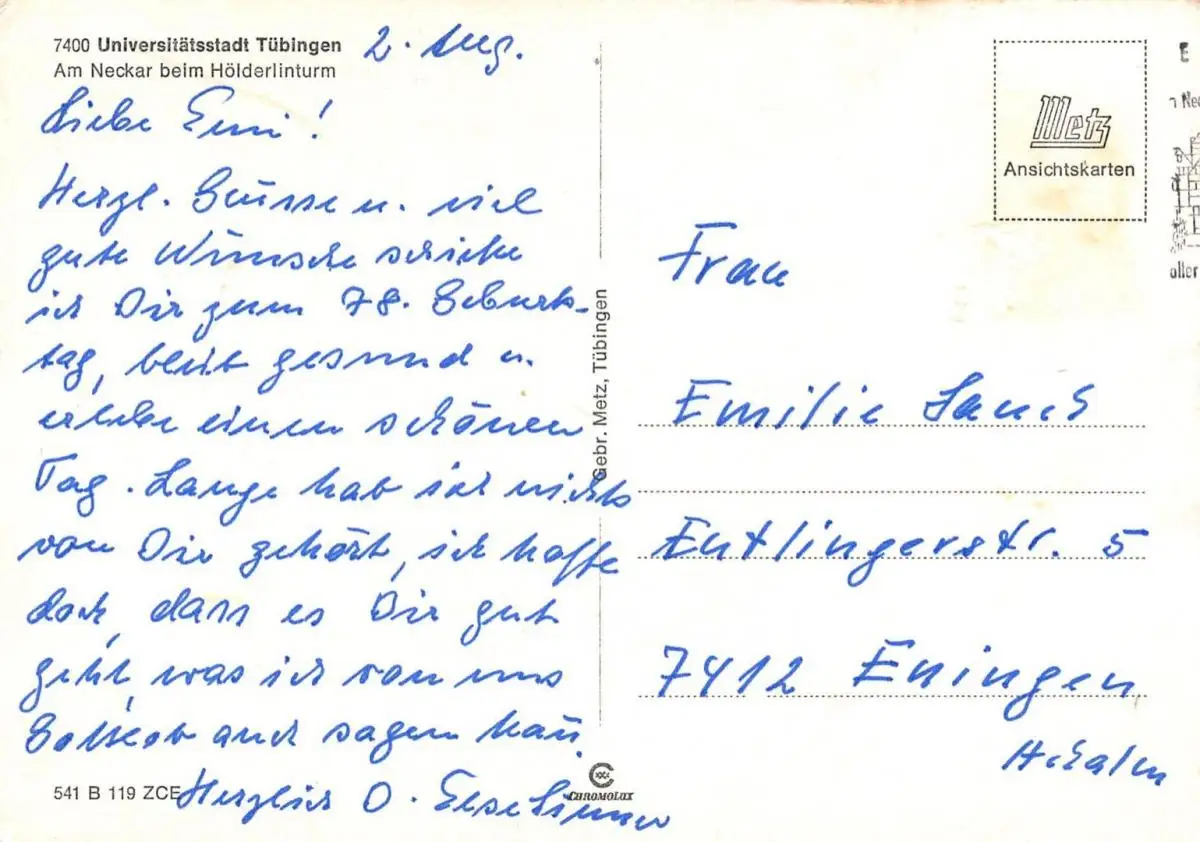 7400 Universitätsstadt Tübingen
Am Neckar beim Hölderlinturm
2. Aug.
Liebe Emi!
Herzl. Grüsse u. viel
gute Wünsche schicke
ich Dir zum 78. Geburts-
tag, bleib gesund u.
erlebe einen schönen
Tag. Lange hab ich nichts
von Dir gehört, ich hoffe
doch, dass es Dir gut
geht, was ich von uns
Gottlob auch sagen kañ.
Herzlich D.
541 B 119 ZCE
Gebr. Metz, Tübingen
CHROMOLUX
Metz
Ansichtskarten
Frau
Emilie
5
7412 Eningen